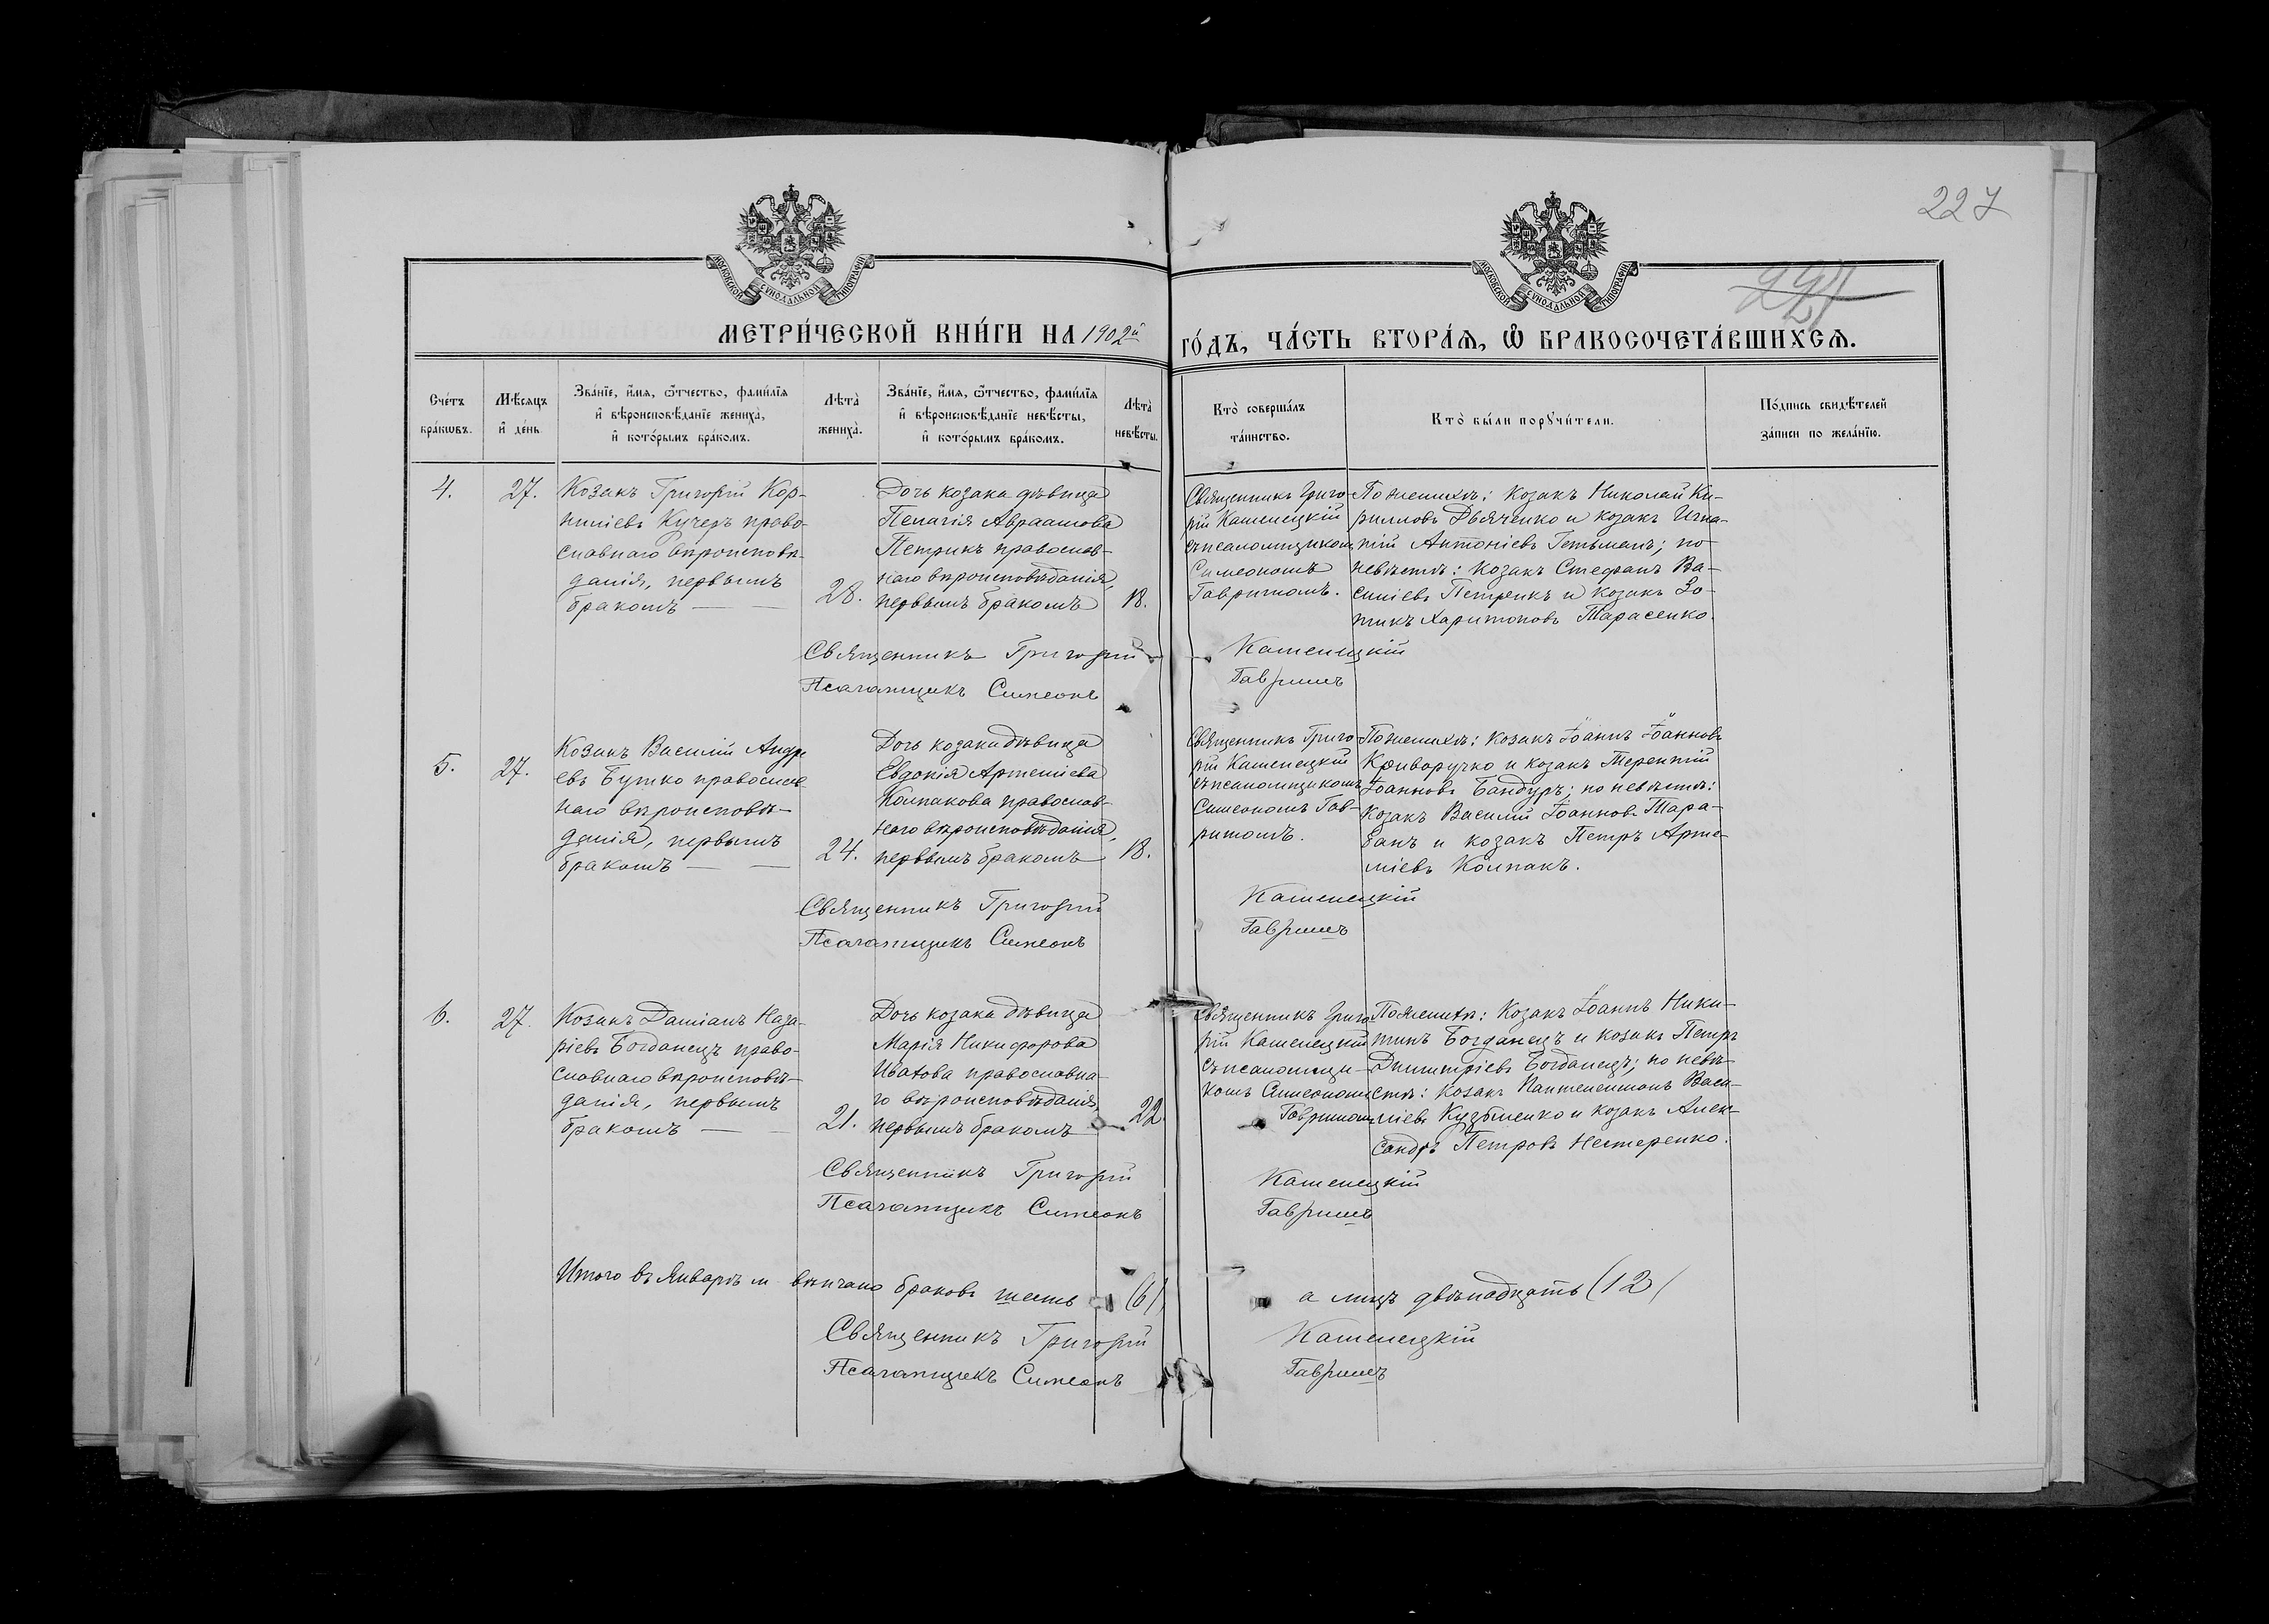 227
МОСКОВСКОЙ СУНОДАЛЬНОЙ ТИПОГРАФІИ
МОСКОВСКОЙ СУНОДАЛЬНОЙ ТИПОГРАФІИ
МЕТРИ́ЧЕСКОЙ КНИ́ГИ НА 1902й
ГО́ДЪ, ЧА́СТЬ ВТОРА́Ѧ, Ѽ БРАКОСОЧЕТА́ВШИХСѦ.
Сче́тъ
бра́кѡвъ.
Мѣ́сѧцъ
и҆ де́нь.
Зва́нїе, и҆́мѧ, ѻ҆́тчество, фами́лїѧ
и҆ вѣроисповѣ́данїе жениха̀,
и҆ кото́рымъ бра́комъ.
Лѣта̀
жениха̀.
Зва́нїе, и҆́мѧ, ѻ҆́тчество, фами́лїѧ
и҆ вѣроисповѣ́данїе невѣ́сты,
и҆ кото́рымъ бра́комъ.
Лѣта̀
невѣ́сты.
Кто̀ соверша́лъ
та́инство.
Кто̀ бы́ли порꙋчи́тели.
По́дпись свидѣ́телей
за́писи по жела́нїю.
4.
27.
Козакъ Григорій Кор-
ниліевъ Кучеръ право-
славнаго вѣроисповѣ-
данія, первымъ
бракомъ —
28.
Дочь козака дѣвица
Пелагія Авраамова
Петрикъ православ-
наго вѣроисповѣданія,
первымъ бракомъ
18.
Священникъ Григо-
рій Каменецкій
съ псаломщикомъ
Симеономъ
Гавришомъ.
По женихѣ: козакъ Николай Ки-
рилловъ Дьяченко и козакъ Игна-
тій Антоніевъ Гетьманъ; по
невѣстѣ: козакъ Стефанъ Ва-
силіевъ Петрикъ и козакъ Зо-
тикъ Харитоновъ Тарасенко.
Священникъ Григорій Каменецкій
Псаломщикъ Симеонъ Гавришъ
5.
27.
Козакъ Василій Андре
евъ Бутко православ
наго вѣроисповѣ-
данія, первымъ
бракомъ —
24.
Дочь козака дѣвица
Евдокія Артеміева
Колпакова православ-
наго вѣроисповѣданія,
первымъ бракомъ
18.
Священникъ Григо
рій Каменецкій
съ псаломщикомъ
Симеономъ Гав-
ришомъ.
По женихѣ: козакъ Іоаннъ Іоанновъ
Криворучко и козакъ Терентій
Іоанновъ Бандуръ; по невѣстѣ:
козакъ Василій Іоанновъ Тара-
банъ и козакъ Петръ Арте-
міевъ Колпакъ.
Священникъ Григорій Каменецкій
Псаломщикъ Симеонъ Гавришъ
6.
27.
Козакъ Даміанъ Наза-
ріевъ Богданецъ право-
славнаго вѣроисповѣ-
данія, первымъ
бракомъ —
21.
Дочь козака дѣвица
Марія Никифорова
православна-
го вѣроисповѣданія,
первымъ бракомъ
22
Священникъ Григо
рій Каменецкій
съ псаломщи-
комъ Симеономъ
Гавришомъ
По женихѣ: Козакъ Іоаннъ Ники-
тинъ Богданецъ и козакъ Петръ
Димитріевъ Богданецъ; по невѣ-
стѣ: козакъ Пантелеимонъ Васи-
ліевъ Кузьменко и козакъ Алек-
сандръ Петровъ Нестеренко.
Священникъ Григорій Каменецкій
Псаломщикъ Симеонъ Гавришъ
Итого въ Январѣ м. вѣнчано браковъ шесть (6) а лицъ двѣнадцать (12)
Священникъ Григорій Каменецкій
Псаломщикъ Симеонъ Гавришъ